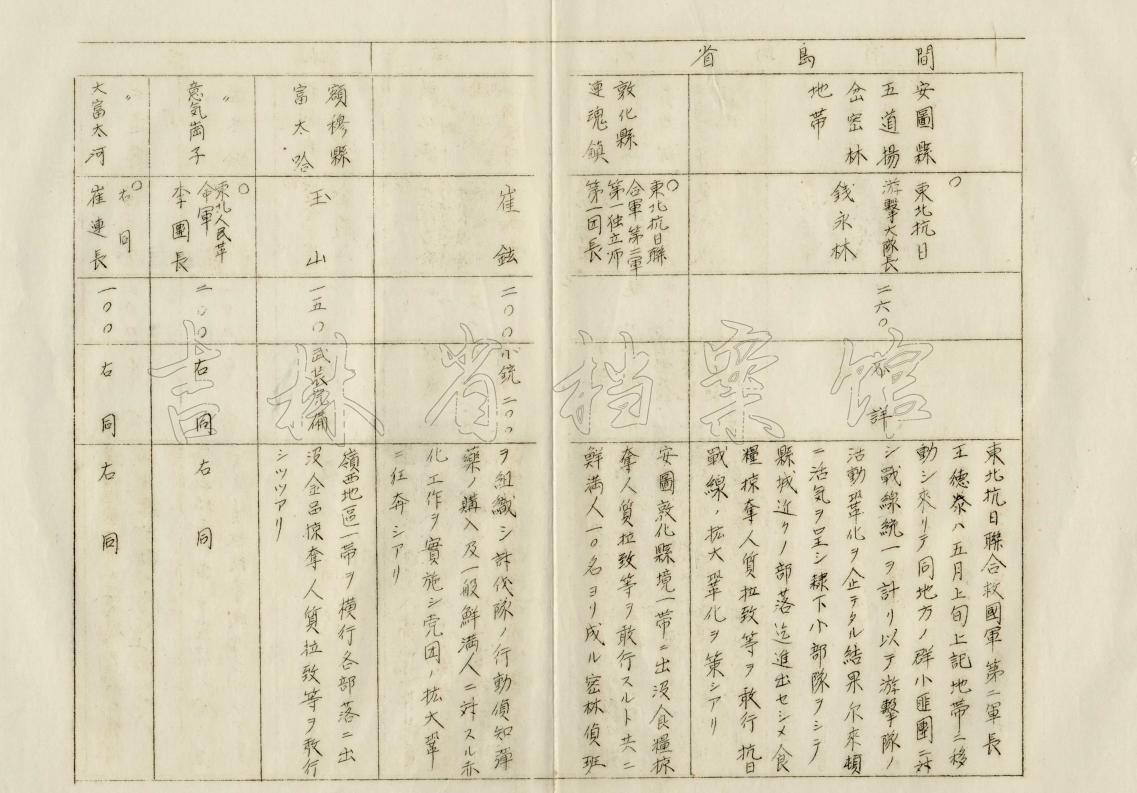 間島省
安圖縣
五道揚
岔密林
地帯
○
東北抗日
游擊大隊長
錢永林
二六〇
不詳
東北抗日聯合救國軍第二軍長
王德泰ハ五月上旬上記地帯ニ移
動シ來リテ同地方ノ群小匪團ニ対
シ戰線統一ヲ計リ以テ游擊隊ノ
活動鞏化ヲ企テタル結果尔來頓
ニ活気ヲ呈シ隷下小部隊ヲシテ
縣城近クノ部落迄進出セシメ食
糧掠奪人質拉致等ヲ敢行抗日
戰線ノ拡大鞏化ヲ策シアリ
敦化縣
連魂鎮
○
東北抗日聯
合軍第二軍
第一独立师
第一团長
安圖敦化縣境一帯ニ出没食糧掠
奪人質拉致等ヲ敢行スルト共ニ
鮮満人一〇名ヨリ成ル密林偵班
崔鉉
二〇〇
小銃二〇〇
ヲ組織シ討伐隊ノ行動偵知彈
藥ノ購入及一般鮮満人ニ対スル赤
化工作ヲ實施シ党団ノ拡大鞏
ニ狂奔シアリ
額穆縣
富太哈
玉山
一五〇
武装完備
嶺西地區一帯ヲ横行各部落ニ出
没金品掠奪人質拉致等ヲ敢行
シツツアリ
〃
意気崗子
○
東北人民革
命軍
李團長
二〇〇
右同
右同
〃
大富太河
○
右同
崔連長
一〇〇
右同
右同
吉林省档案馆